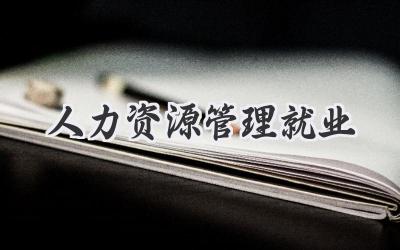 人力资源管理就业